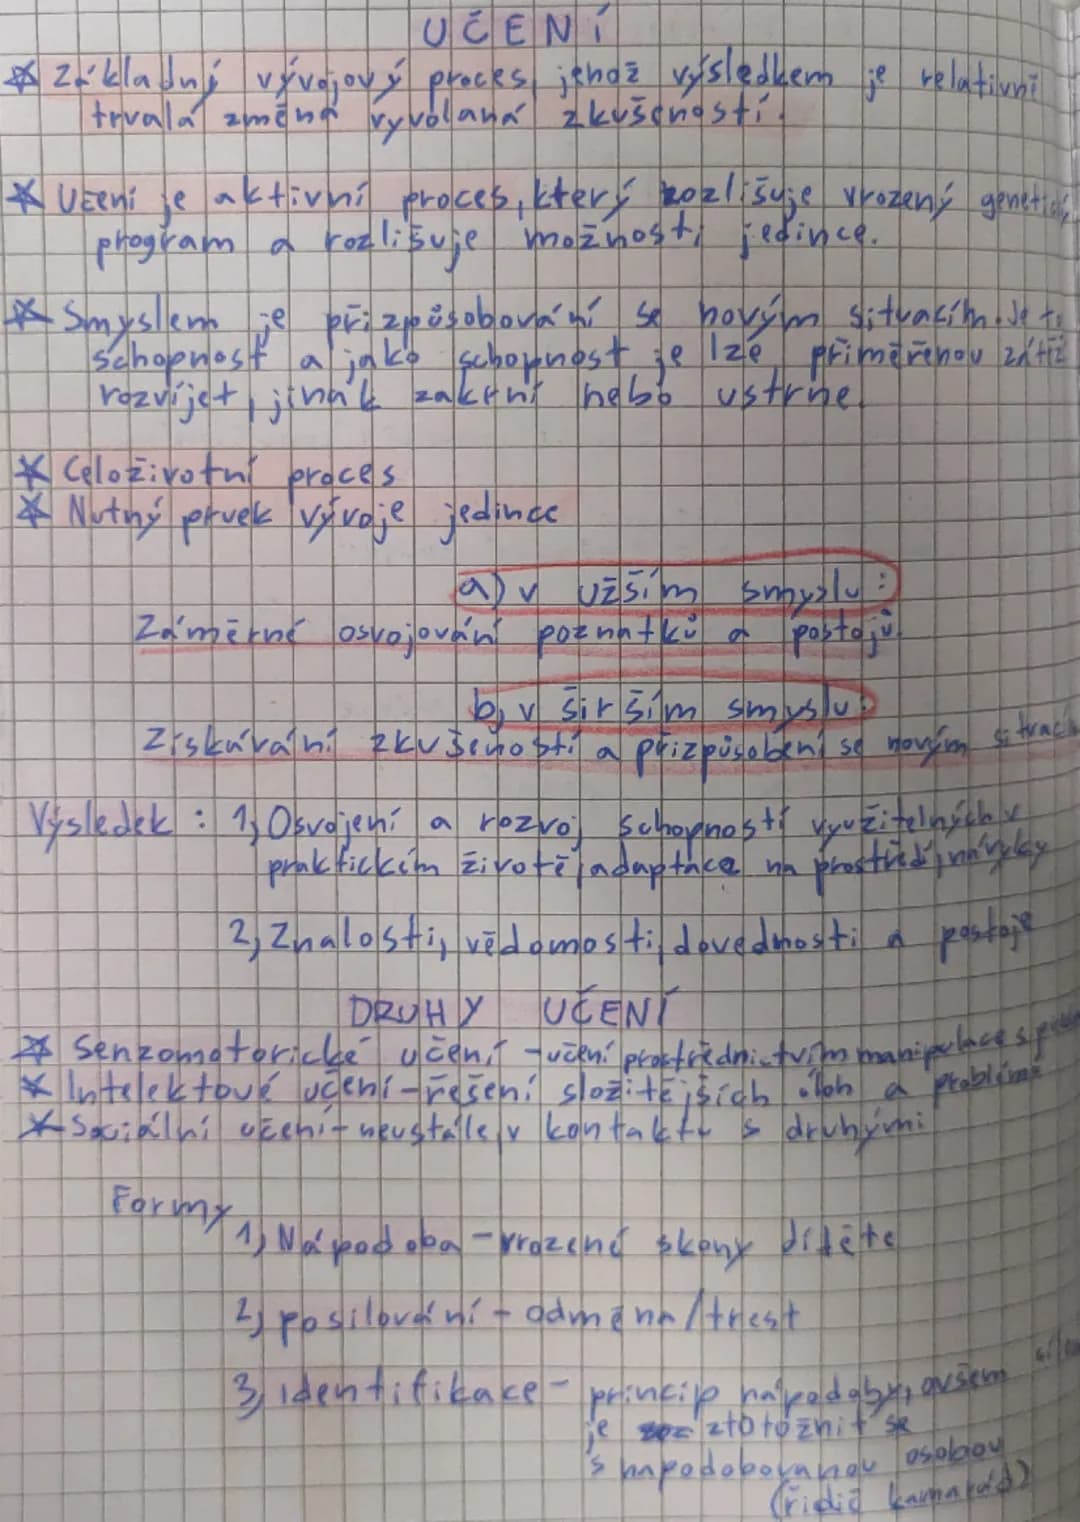 UČENÍ
Základný vývojový proces, jehož výsledkem je relativní
trvalá změna vyvolaná zkušeností.
Učení je aktivní proces, který rozlišuje vrozený
program a rozlišuje možnosti jedince.
Smyslem je přizpůsobování se novým situacím. Je to
schopnost a jako schopnost je lze přiměřenou
rozvíjet, jinak zakrní nebo ustrne.
Celoživotní proces
Nutný prvek vývoje jedince
a) v užším smyslu:
Záměrné osvojování poznatků a postojů
b) v širším smyslu:
Získávání zkušeností a přizpůsobení se novým
Výsledek: 1) Osvojení a rozvoj schopností využitelných v
praktickém životě, adaptace na prostředí, návyky
2) Znalosti, vědomosti, dovednosti a postoje
DRUHY UČENÍ
Senzomotorické učení - učení prostřednictvím manipulace s
Intelektové učení - řešení složitějších úloh a problémů
Sociální učení - neustále v kontaktu s druhými
Formy
1) Nápodoba - vrozené skony dítěte
2) posilování - odměna/trest
3) identifikace - princip nápodoby, ovšem
je ztotožnit se
s napodobovanou osobou
(řidič kamarád)